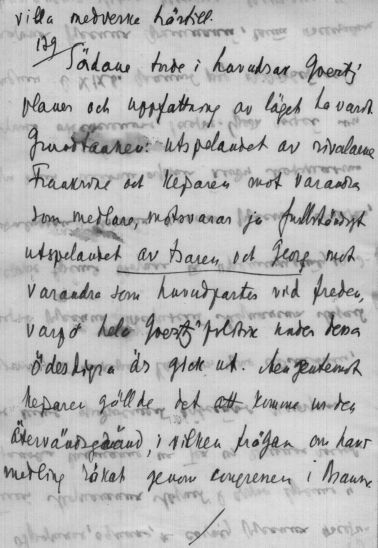 villa medverka härtill.
129
Sådana torde i huvudsak Goertz'
planer och uppfattning av läget ha varit
Grundtanken: utspelandet av rivalerna
Frankrike och Kejsaren mot varandra
som medlare, motsvarar ju fullständigt
utspelandet av tsaren och Georg mot
varandra som huvudparter vid freden,
varpå hela Goertz' politik under dessa
ödesdigra år gick ut. Gentemot
Kejsaren gällde det att komma ur den
återvändsgränd, i vilken frågan om hans
medling råkat genom congressen i Braun-